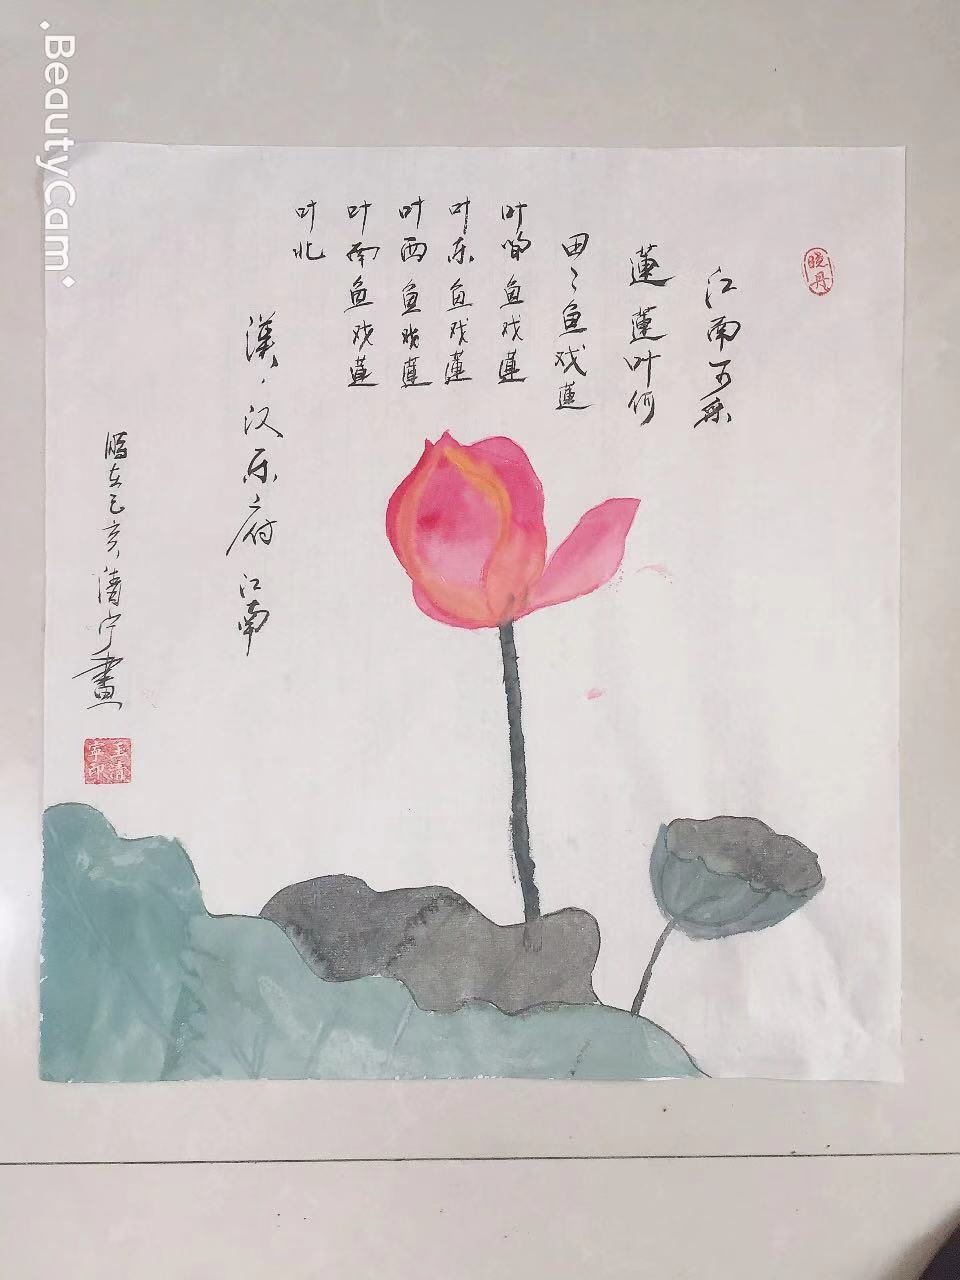 江南可采
蓮蓮叶何
田〻鱼戏蓮
叶间鱼戏蓮
叶东鱼戏蓮
叶西鱼戏蓮
叶南鱼戏蓮
叶北
漢·汉乐府江南
岁在己亥清宁畫
晓丹
王清宁印
·BeautyCam·